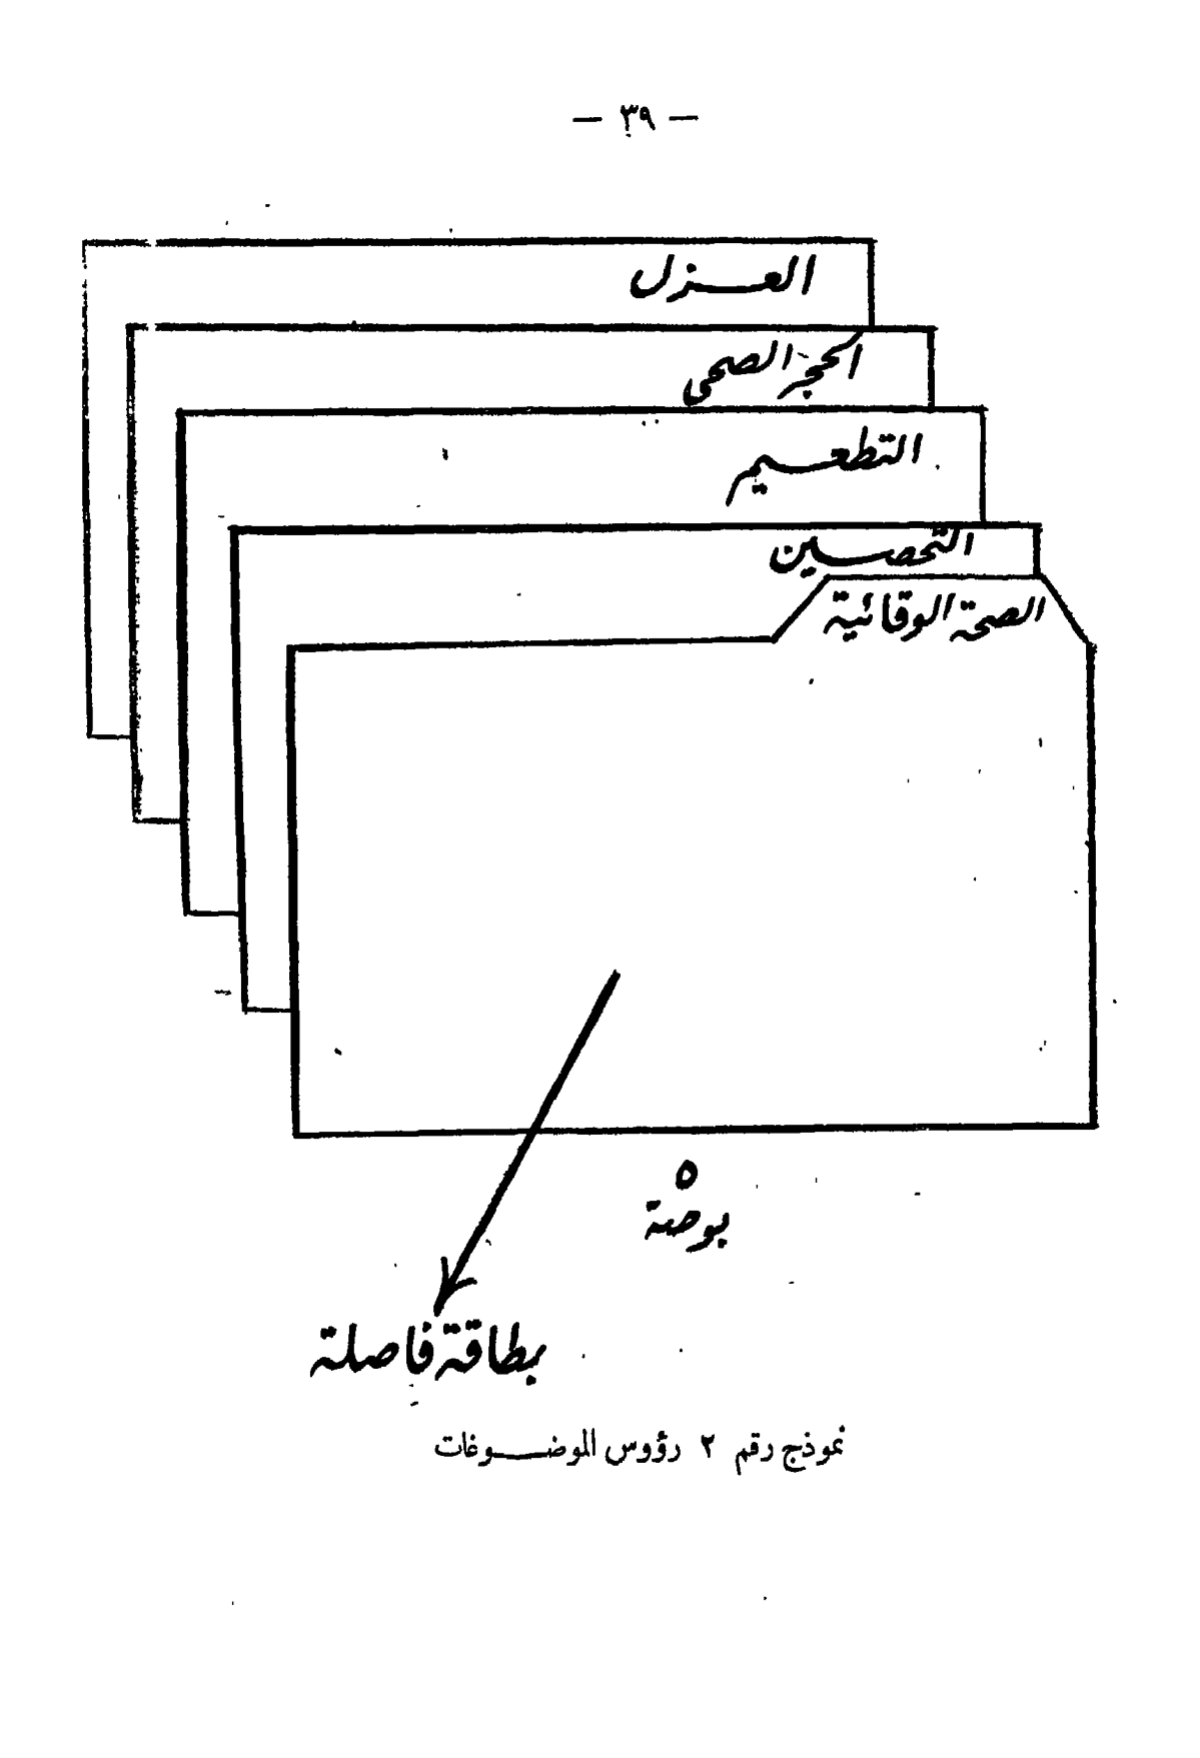 — ٣٩ —
العــزل
الحجر الصحى
التطعــيم
التحصــين
الصحة الوقائية
٥
بوصة
بطاقة فاصلة
نموذج رقم ٢ رؤوس الموضــوغات